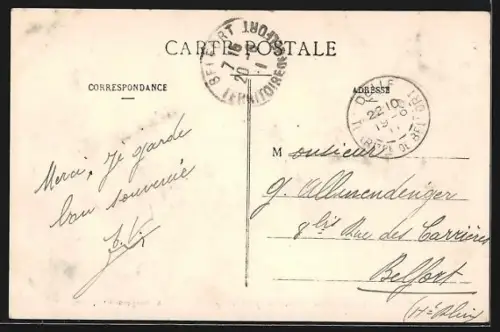 CARTE POSTALE
CORRESPONDANCE
ADRESSE
BELFORT
7-16
20-6
11
TERRITOIRE DE BELFORT
DELLE
22-10
19-6
11
TERRRE DE BELFORT
Merci, je garde
bon souvenir
Monsieur
G. Allmendinger
8bis Rue des Carrières
Belfort
(Ht Rhin